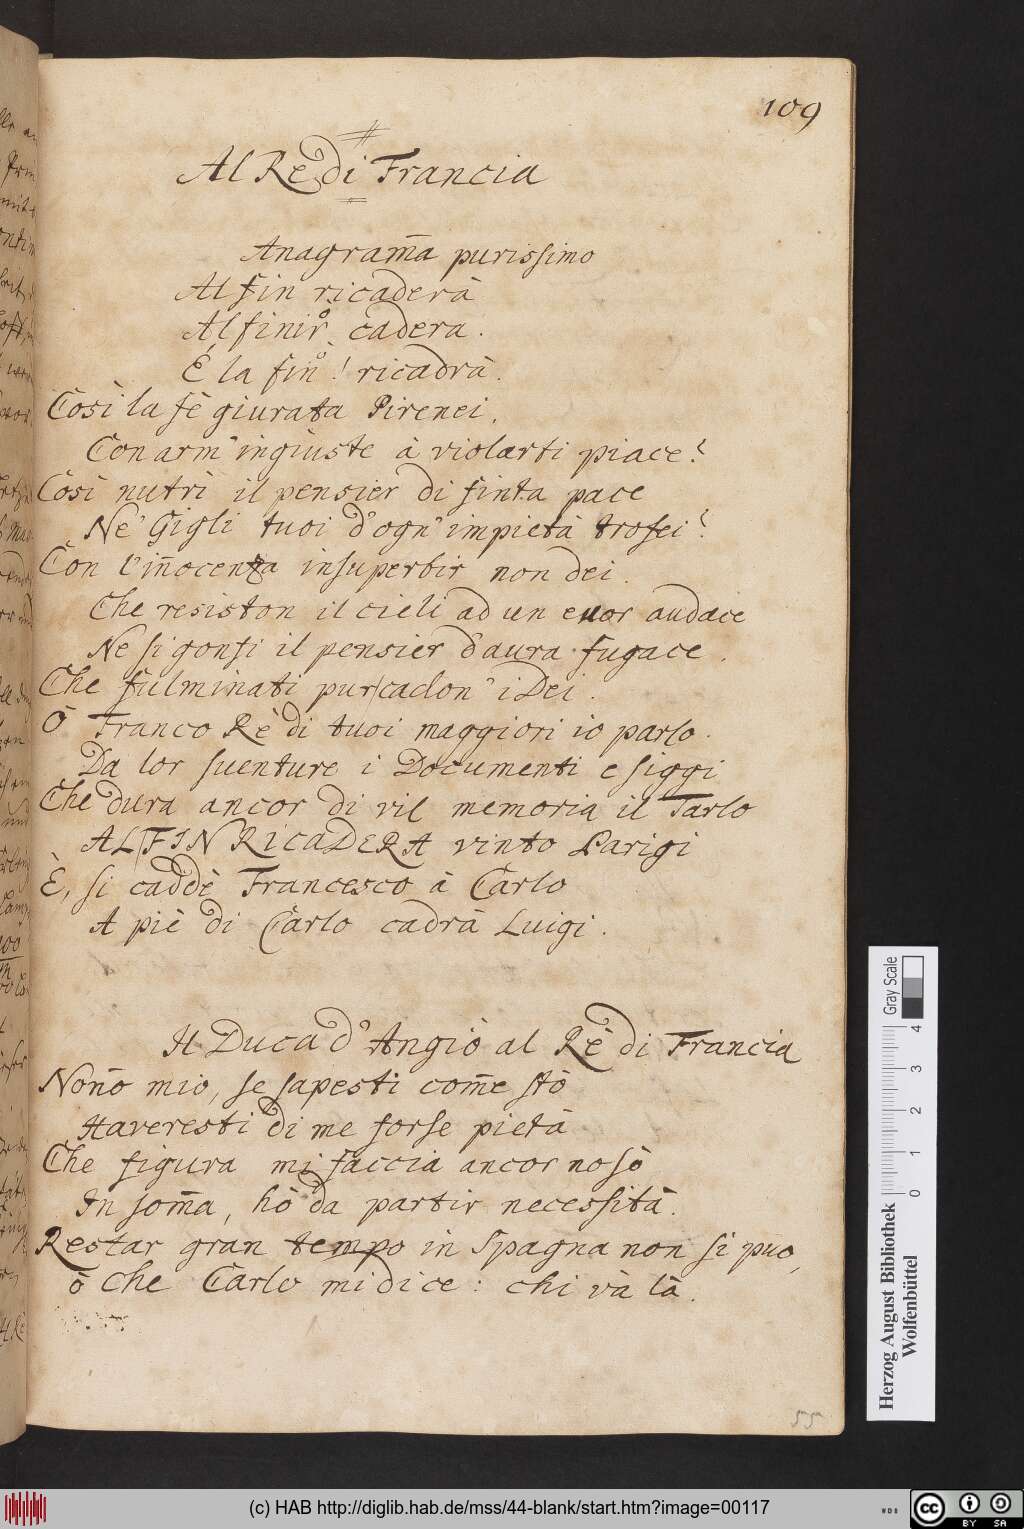 109
Al Re di Francia
Anagram̄a purissimo
Al fin ricaderà
Al finir. cadera.
È la fin! ricadrà.
Così la fè giurata Pirenei,
Con arm' ingiuste à violarti piace?
Così nutrì il pensier di finta pace
Ne' Gigli tuoi d'ogn' impietà trofei?
Con l'in̄ocenza insuperbir non dei.
Che resiston il cieli ad un cuor audace
Ne si gonfi il pensier d'aura fugace.
Che fulminati pur cadon' i Dei.
Ò Franco Rè di tuoi maggiori io parlo.
Da lor suenture i Documenti esiggi
Che dura ancor di vil memoria il Tarlo
AL FIN RICADERA vinto Parigi
È, si caddè Francesco à Carlo
A piè di Carlo cadrà Luigi.
Il Duca d' Angiò al Rè di Francia
Non̄o mio, se sapesti com̄e stò
Haveresti di me forse pietà
Che figura mi faccia ancor no sò
In som̄a, hò da partir necessità.
Restar gran tempo in Spagna non si puo,
ò che Carlo mi dice: chi và là.
55
Gray Scale
0 1 2 3 4
Herzog August Bibliothek
Wolfenbüttel
(c) HAB http://diglib.hab.de/mss/44-blank/start.htm?image=00117
WDB
cc BY SA